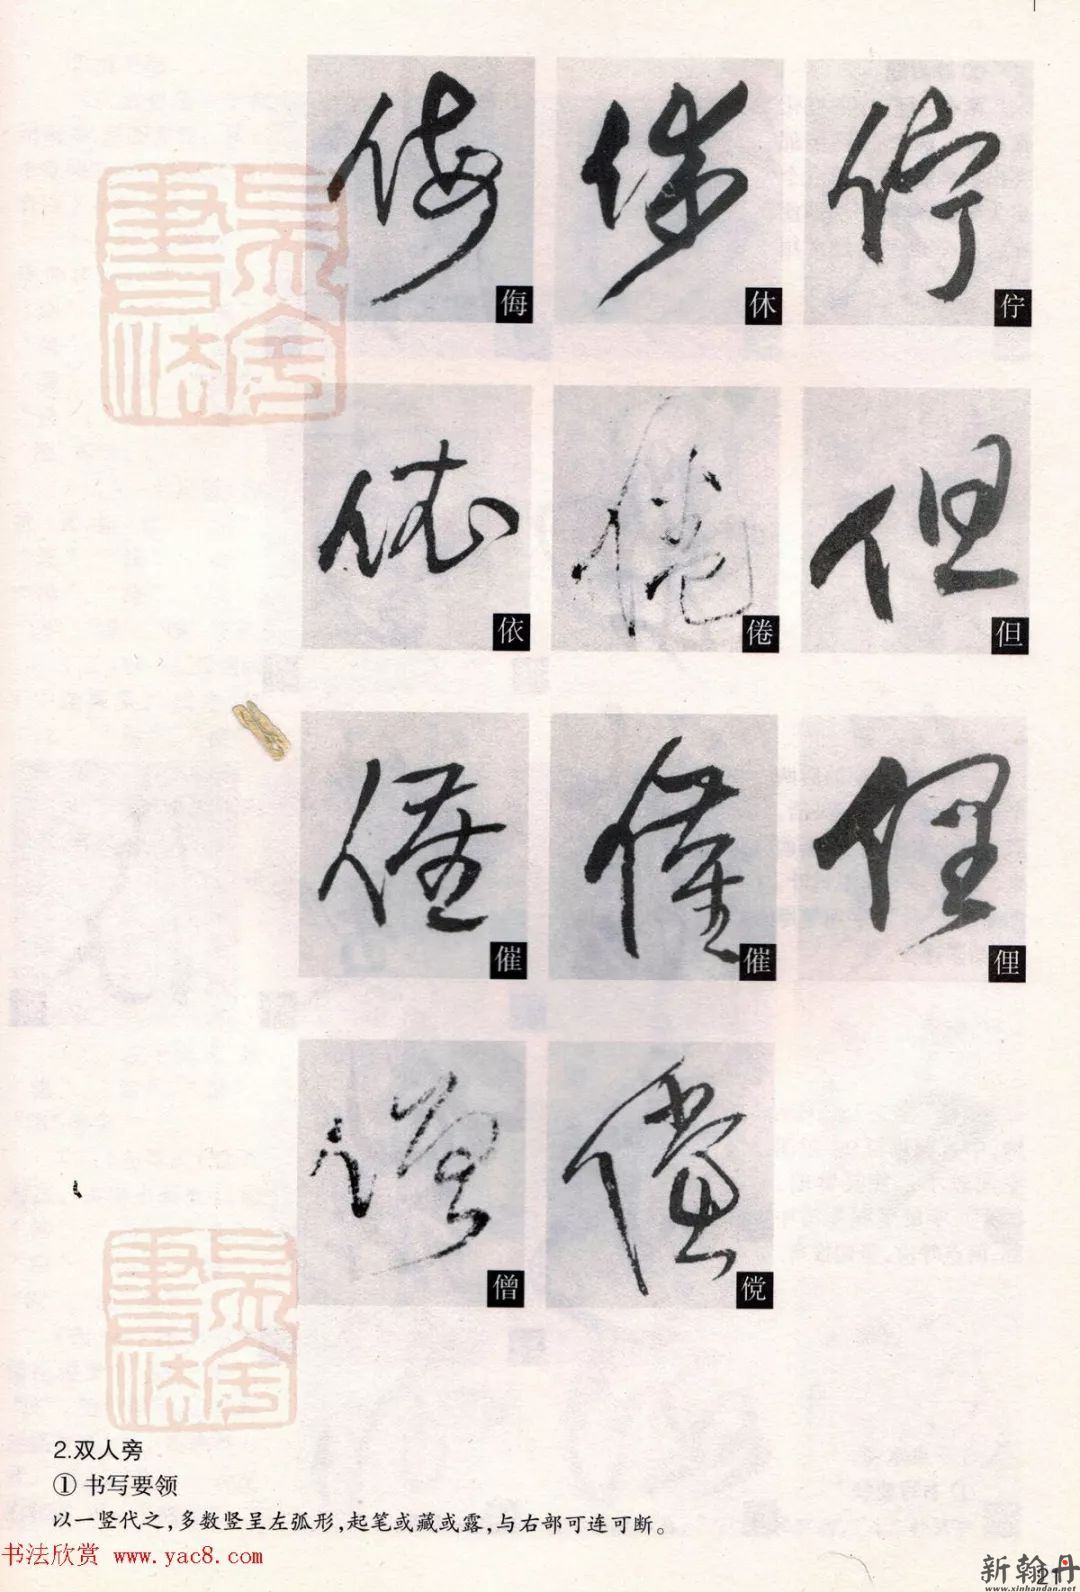 侮 休 佇
依 倦 但
催 催 俚
僧 傥
2.双人旁
① 书写要领
以一竖代之，多数竖呈左弧形，起笔或藏或露，与右部可连可断。
书法欣赏 www.yac8.com
新翰丹
www.xinhandan.net
21